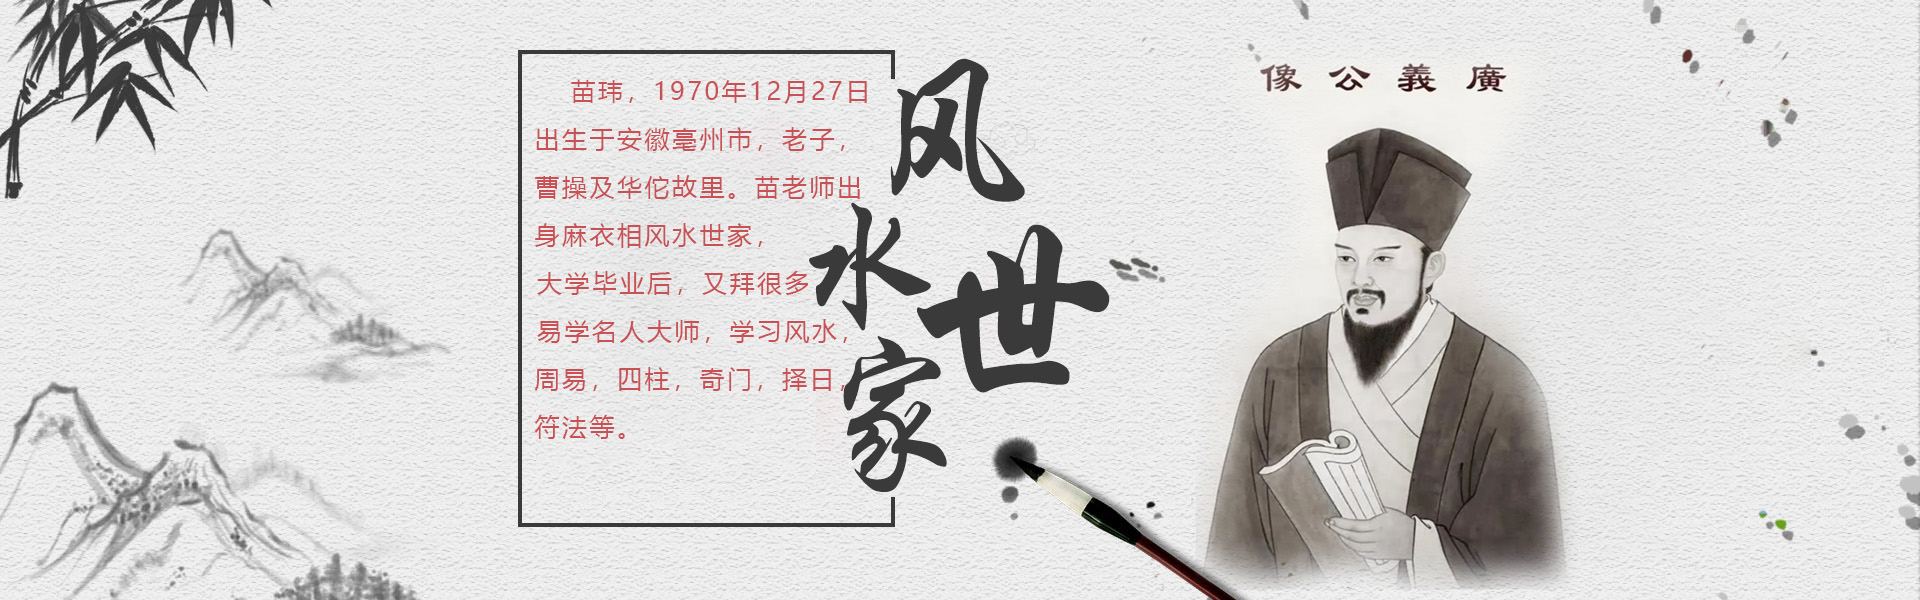 苗玮，1970年12月27日
出生于安徽毫州市，老子，
曹操及华佗故里。苗老师出
身麻衣相风水世家，
大学毕业后，又拜很多
易学名人大师，学习风水，
周易，四柱，奇门，择日，
符法等。
风水世家
廣義公像